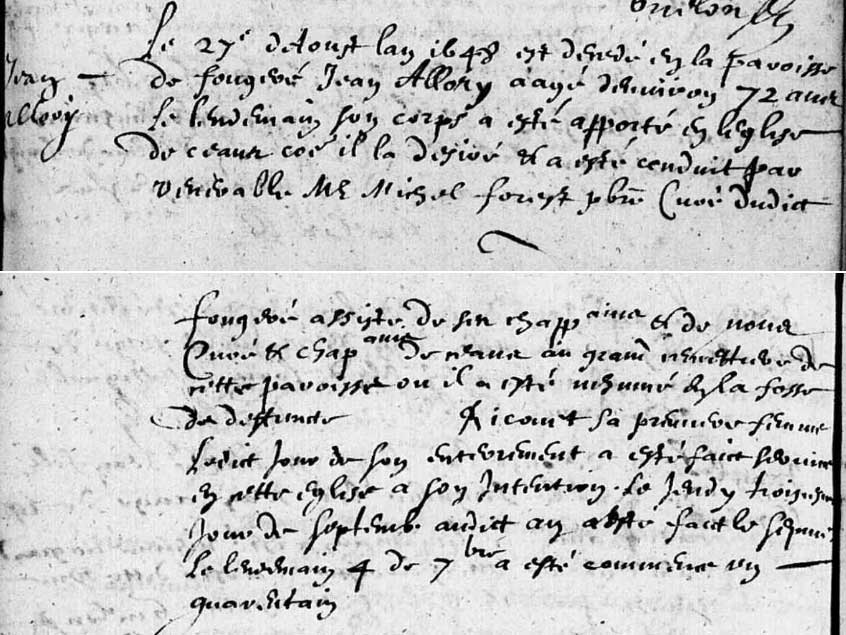 Le 27e d'Aoust lan 1648 est decedé en la paroisse
Jean
de fougeré Jean Allory aagé denviron 72 ans
Allory
Le lendemain son corps a esté apporté en leglise
de ceans coe il la desiré & a esté conduit par
venerable Me Michel forest pbre Curé dudict
fougeré assisté de ses chappains & de nous
Curé & chapains de ceans au grand cimetiere de
cette paroisse ou il a esté inhumé en la fosse
de deffuncte Ricoul sa premiere femme
Ledict jour de son enterrement a esté faict service
en cette eglise a son Intention. Le Jeudy troisiesme
jour de septemb audict an a esté faict le sepme
Le lendemain 4 de 7bre a esté commencé un
quarentain